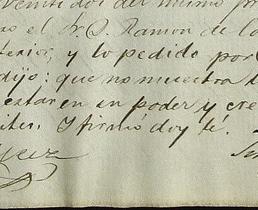 veintidos del mismo
el Sr. D. Ramon de
y lo pedido por
dijo: que no muestra
estar en su poder y cre
Y firmó doy fé.